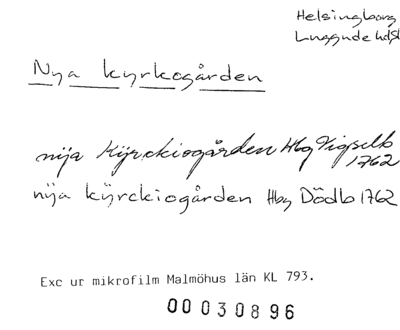 Helsingborg
Luggude hd
Nya kyrkogården
nÿa Kÿrckiogården Hbg Vigselb
1762
nÿa kÿrckiogården Hbg Dödb 1762
Exc ur mikrofilm Malmöhus län KL 793.
00030896